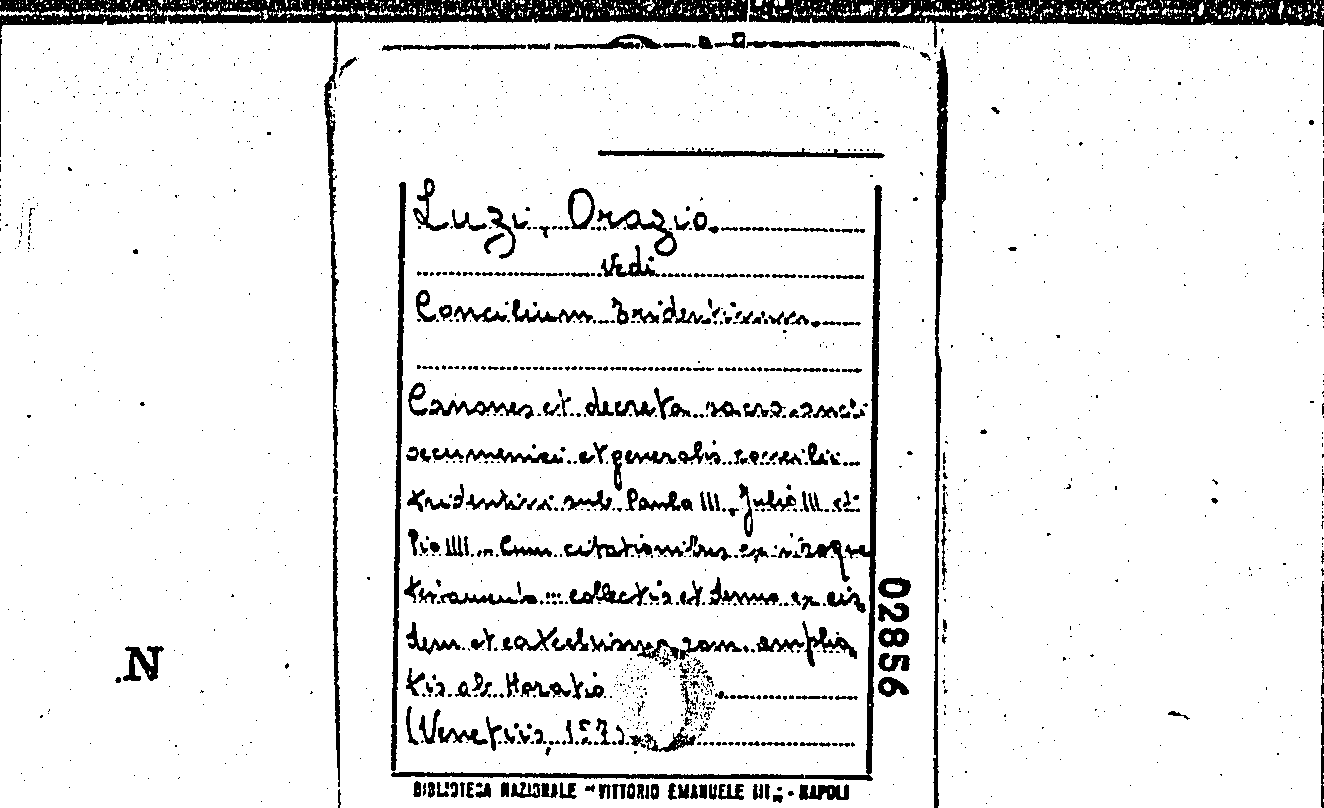 Luzi, Orazio.
Vedi
Concilium Tridentinum.
Canones et decreta sacro.sancti
oecumenici et generalis concilii
tridentini sub Paulo III, Julio III et
Pio IIII .. Cum citationibus ex utroque
testamento ... collectis et demus ex eis
dem et catechismo rom. amplia
tis ab Horatio
(Venetiis, 157
02856
N
BIBLIOTECA NAZIONALE "VITTORIO EMANUELE III" - NAPOLI